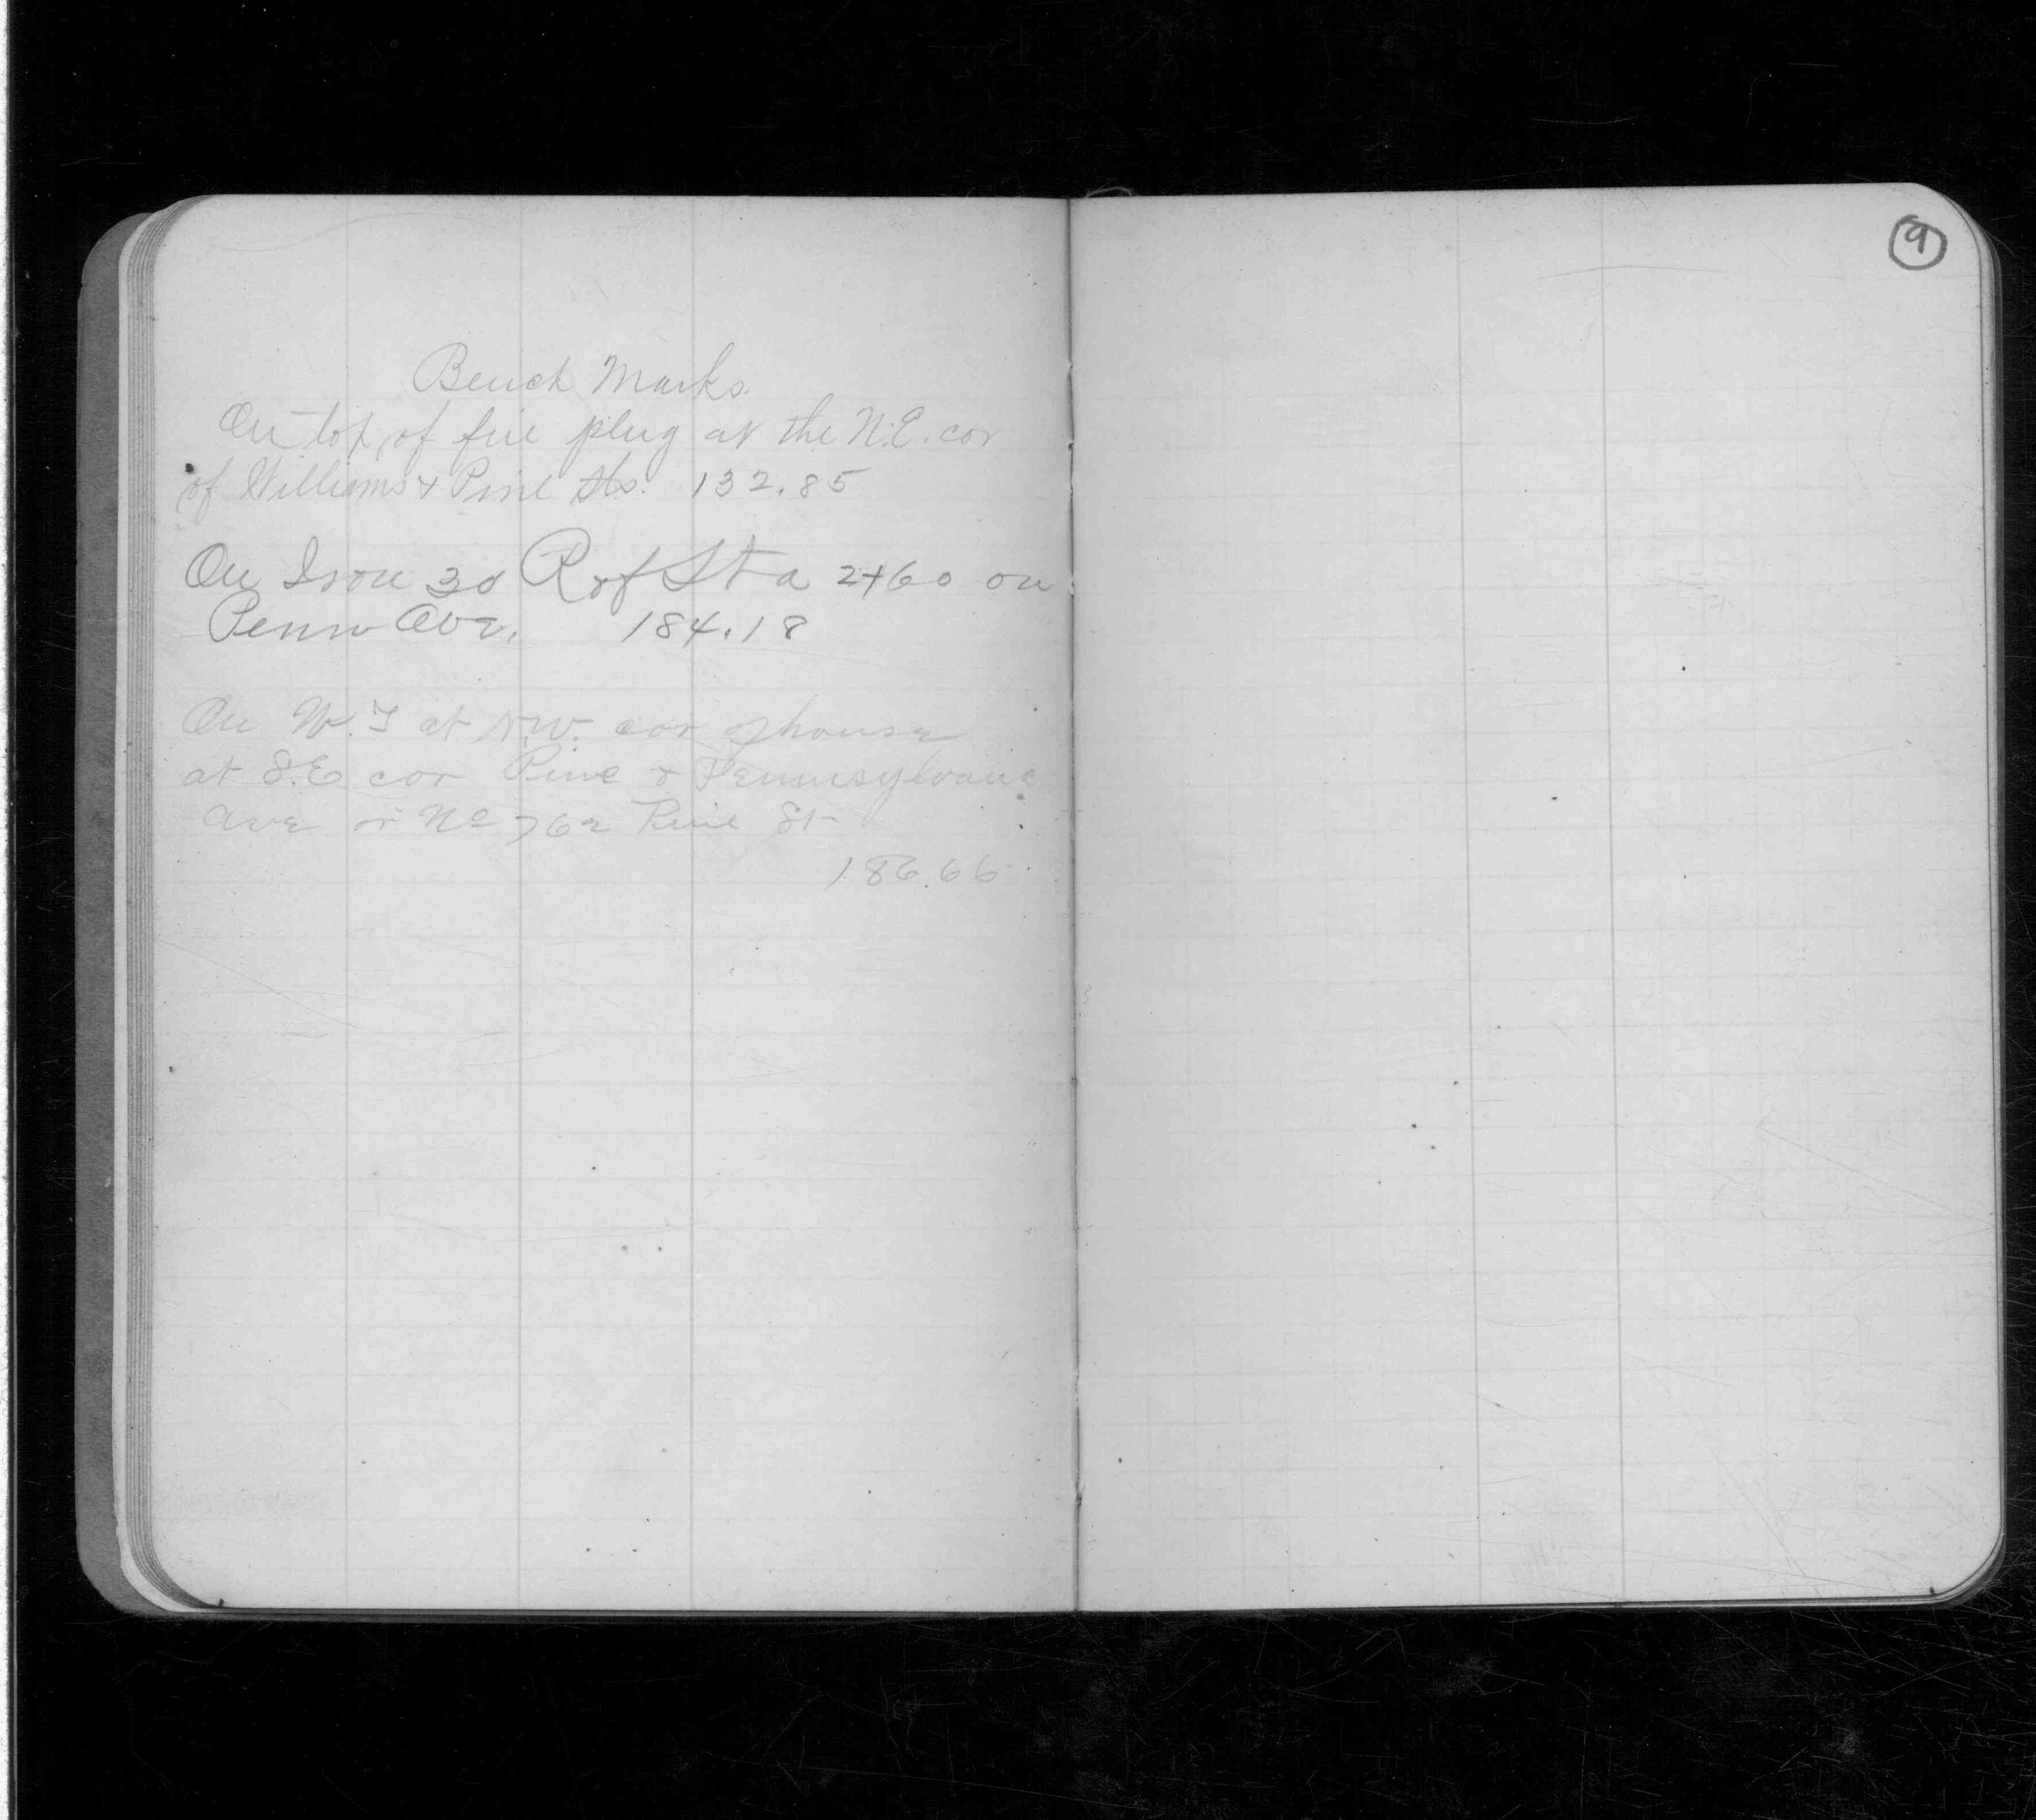 Bench Marks.
On top of fire plug at the N.E. cor
of Williams & Pine Sts. 132.85
On Iron 30 R of Sta 2+60 on
Penn Ave. 184.18
On W.T at N.W. cor of house
at S.E cor Pine & Pennsylvania
Ave or No 762 Pine St
186.66
9